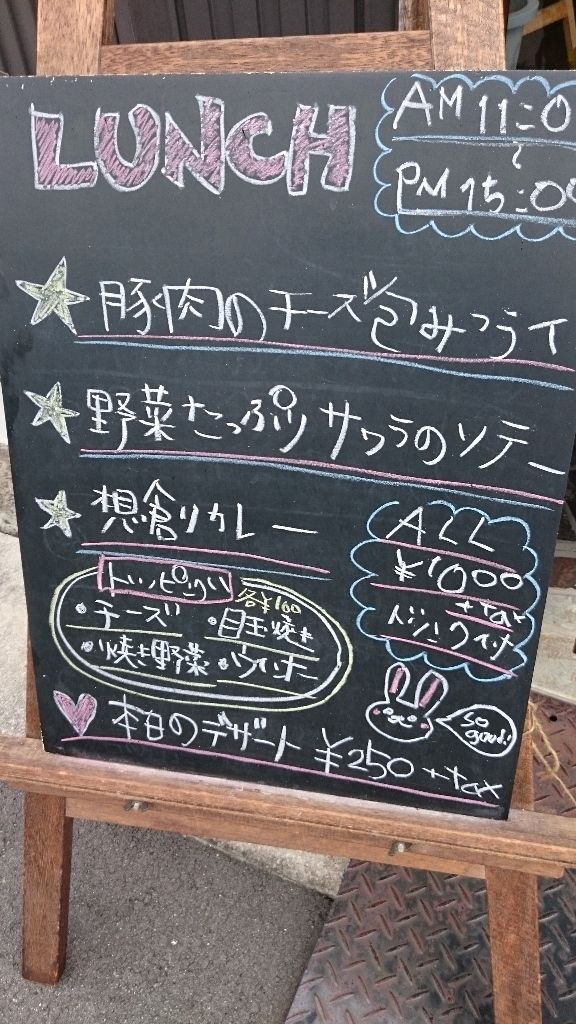 LUNCH
AM 11:0
~
PM 15:00
豚肉のチーズ包みフライ
野菜たっぷりサワラのソテー
想創りカレー
トッピング
各¥100
・チーズ ・目玉焼き
・焼き野菜 ・ウインナー
ALL
¥1000
+tax
ドリンク付
so
good!
本日のデザート ¥250 +tax